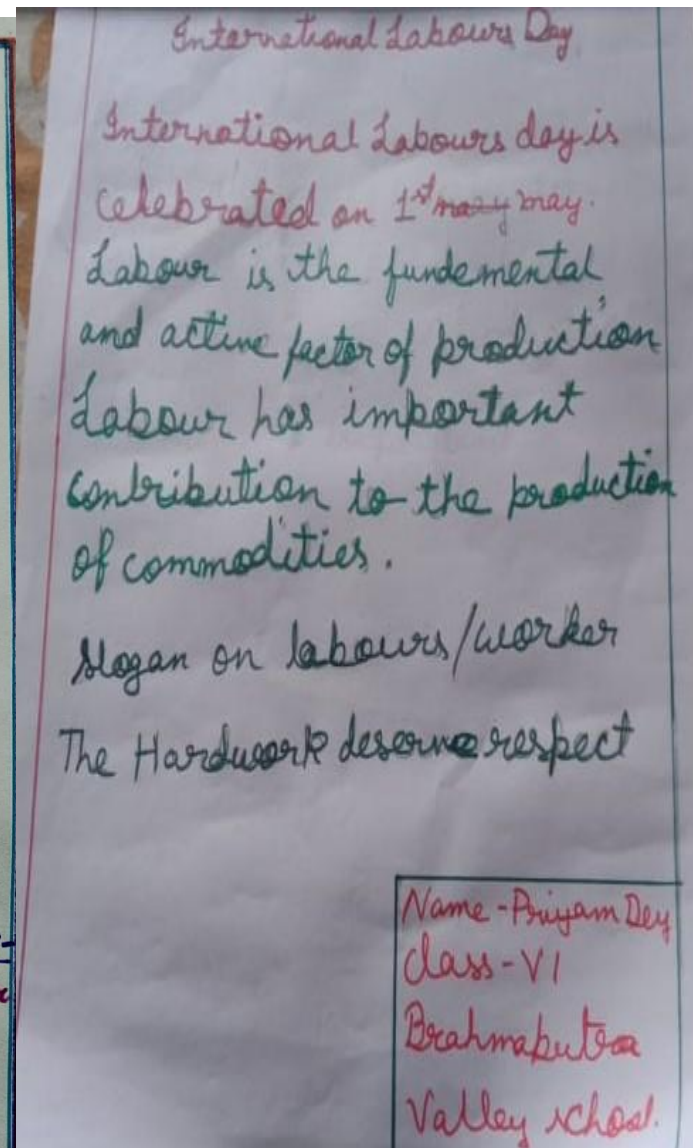 International Labours Day
International Labours day is
celebrated on 1st may may.
Labour is the fundemental
and active factor of production
Labour has important
contribution to the production
of commodities.
slogan on labours/worker
The Hardwork deserve respect
Name - Priyam Dey
class - VI
Brahmaputra
Valley school.